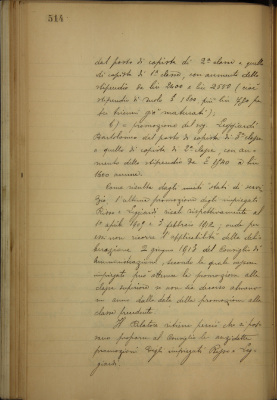 514
dal posto di capista di 2ª classe a quello
di capista di 1ª classe, con aumento dello
stipendio da lire 2400 a lire 2550 (cioè
stipendio di ruolo £ 1800 più lire 750 per
trienni già maturati);
b) a promozione del sig. Leggiardi
Bartolomeo dal posto di capista di 3ª classe
a quello di capista di 2ª classe, con au-
mento dello stipendio da £ 1500 a lire
1800 annue.
Come risulta dagli uniti stati di servi-
zio, l'ultima promozione degli impiegati
e risale rispettivamente al
1º aprile 1909 e 1º febbraio 1912; onde per
essi non ricorre l'applicabilità della deli-
berazione 2 giugno 1913 del Consiglio di
Amministrazione, secondo la quale nessun
impiegato può ottenere la promozione alla
classe superiore se non sia decorso almeno
un anno dalla data della promozione alla
classe precedente.
Il Relatore ritiene perciò che si pos-
sano proporre al Consiglio le
promozioni degli impiegati e Leg-
giardi.